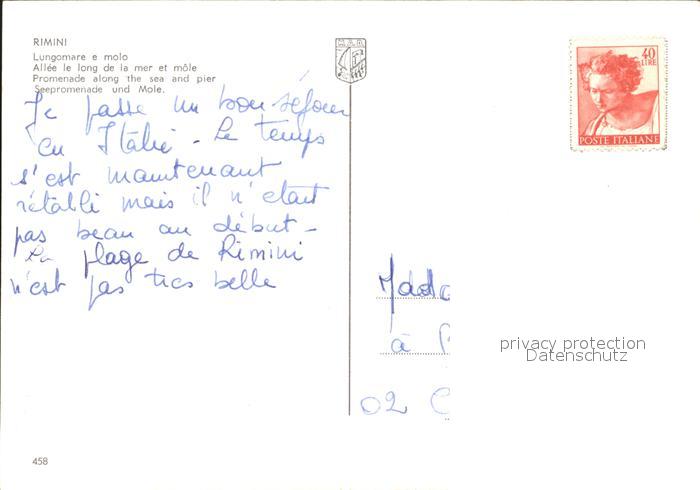 RIMINI
Lungomare e molo
Allée le long de la mer et môle
Promenade along the sea and pier
Seepromenade und Mole.
M.A.R.
40
LIRE
POSTE ITALIANE
Je passe un bon séjour
en Italie - Le temps
s'est maintenant
rétabli mais il n'était
pas beau au début -
La plage de Rimini
n'est pas très belle
à
02 C
privacy protection
Datenschutz
458